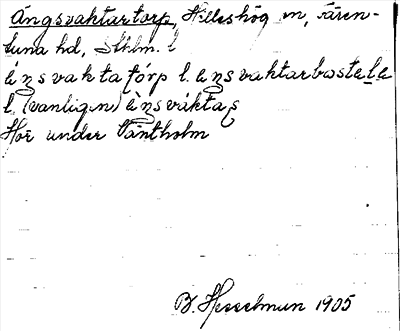 Ängsvaktartorp, Hilleshög sn, Fären-
tuna hd, Sthlm. l
ä̀ŋsvaktatórp l. äŋsvaktarbostələ
l. (vanligen) ä̀ŋsvákta
Hör under Svantholm
B. Hesselman 1905